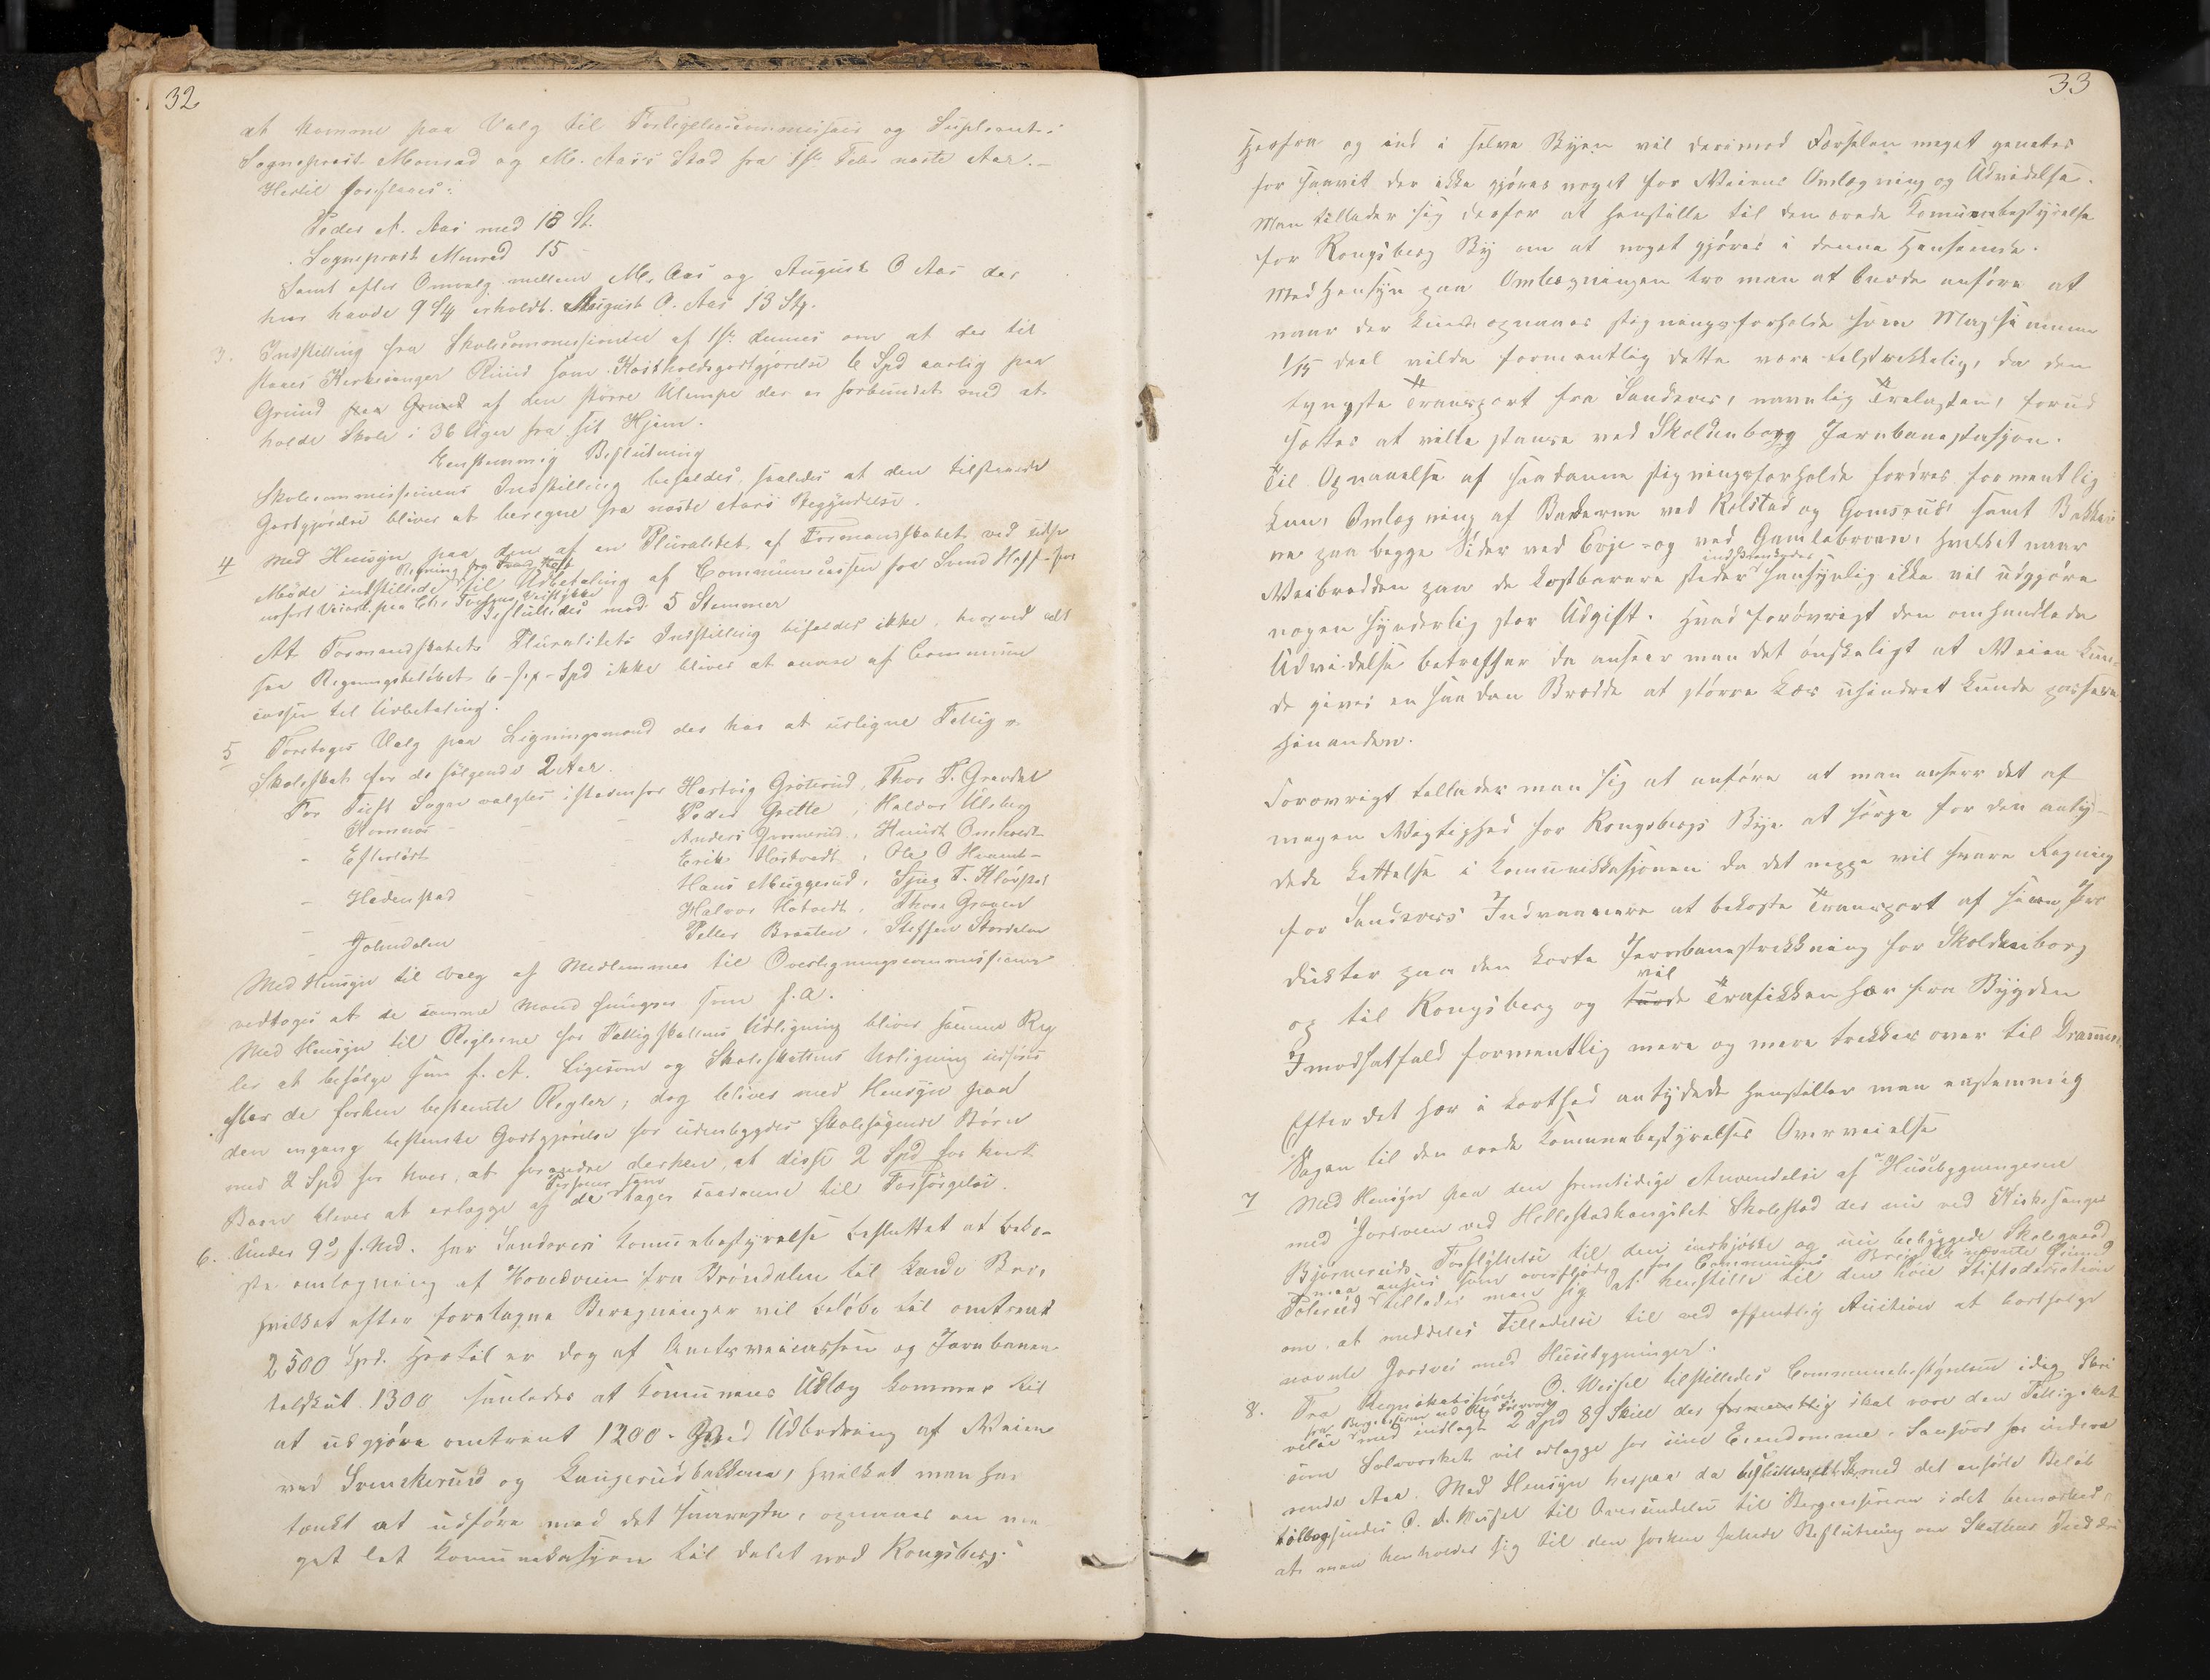 32
at komme paa Valg til Forligelsescommissair og Supleant i
Sognepræst Monrad og M. Aas's Sted fra 1ste Febr næste Aar. –
Hertil foreslaaes:
Peder A. Aas med 18 St.
Sognepræst Monrad 15 –
Samt efter Omvalg mellem M. Aas og August O Aas der
hver havde 9 St erholdt August O. Aas 13 St.
3. Indstilling fra Skolecommissionen af 1ste dennes om at der til
staaes Kirkesanger Ruud som Kostholdsgodtgjørelse 6 Spd aarlig paa
Grund paa Grund af den større Ulempe der er forbundet med at
holde Skole i 36 Uger fra sit Hjem.
Eenstemmig Beslutning
Skolecommissionens Indstilling bifaldes, saaledes at den tilstaaede
Godtgjørelse bliver at beregne fra næste Aars Begyndelse.
4 Med Hensyn paa den af en Pluralitet af Formandskabet ved sidste
Møde indstillede Regning fra Svend Hoff til Udbetaling af Communecassen for Svend Hoff for
udført Veiarb. paa Chr. Veistykke
Besluttedes med 5 Stemmer
At Formandskabets Pluralitets Indstilling bifaldes ikke, hvorved alt
saa Regningsbeløbet 6 – sex – Spd ikke bliver at anvise af Commune
cassen til Udbetaling.
5 Foretoges Valg paa Ligningsmænd der har at udligne Fattig &
Skoleskat for de følgende 2 Aar.
For Tuft Sogn valgtes istedenfor Hartvig Grøterud, Thor T. Gravdal
– Komnæs – Peder Grette, Halvor Ulsberg
– Eftelødt – Anders Gommerud, Knudt Omholdt
Erik Hostvedt, Ole O
– Hedenstad – Hans Muggerud, T. Kløvstad
Halvor Hotvedt, Thore Graven
– Jondalen Petter Braaten, Steffen Stordalen
Med Hensyn til Valg af Medlemmer til Overligningscommissionen
vedtoges at de samme Mænd fungere som f. A.
Med Hensyn til Reglerne for Fattigskattens Udligning bliver samme Reg
ler at befølge som f. A. Ligesom og Skoleskattens Udligning udføres
efter de forhen bestemte Regler, dog bliver med Hensyn paa
den engang bestemte Godtgjørelse for udenbygdes skolesøgende Børn
med 2 Spd for hver, at forandre derhen, at disse 2 Spd for hvert
Barn bliver at erlægge af de Personer som tager saadanne til Forsørgelse.
6. Under 9de f. Md. har Sandsvers Komunebestyrelse besluttet at beko-
ste omlægning af Hovedveien fra Brøndalen til Lande Bro,
hvilket efter foretagne Beregninger vil beløbe til omtrent
2500 Spd. Hertil er dog af Amtsveicassen og Jernbanen
tilskut. 1300 saaledes at Komunens Udlæg kommer til
at udgjøre omtrent 1200. – Ved Udbedring af Veien
ved Svenskerud og Langerudbakkene, hvilket man har
tænkt at udføre med det snareste, opnaaes en me
get let Komunikasjon til Delet ved Kongsberg.
33
Herfra og ind i selve Byen vil derimod Færselen meget generes
for saavit der ikke gjøres noget for Veiens Omlægning og Udvidelse.
Man tillader sig derfor at henstille til den ærede Komunebestyrelse
for Kongsberg By om at noget gjøres i denne Henseende.
Med Hensyn paa Omlægningen tro man at burde anføre at
naar der kunde opnaaes stigningsforholde som Maximum
1/15 deel vilde formentlig dette være tilstrekkelig, da den
tyngste Transport fra Sandsver, navnlig Trælasten, forud
sættes at ville stanse ved Skoldenborg Jernbanestasjon.
Til Opnaaelse af saadanne stigningsforholde fordres formentlig
kun, Omlægning af Bakkerne ved Kolstad og Gomsrud, samt Bakker
ne paa begge Sider ved Evje – og ved Gamlebroen, hvilket naar
Veibredden paa de kostbarere steder indskrænkedes sansynlig ikke vil udgjøre
nogen synderlig stor Udgift. Hvad forøvrigt den omhandlede
Udvidelse betreffer da anseer man det ønskeligt at Veien kun-
de gives en saadan Bredde at større Læs uhindret kunde passere
hinanden.
Forovrigt tillader man sig at anføre at man anseer det af
megen Vigtighed for Kongsbergs Bye at sørge for den anty-
dede Lettelse i Komunikkasjonen da det neppe vil svare Regning
for Sandsvers Indvaanere at bekoste Transport af sine Pro
dukter paa den korte Jernbanestrækkning for Skoldenborg
og til Kongsberg og turde vil Trafikken her fra Bygden
I modsatfald formentlig mere og mere trækkes over til Drammen.
Efter det her i korthed antydede henstiller man enstemmig
Sagen til den ærede Komunebestyrelses Overveielse
7 Med Hensyn paa den fremtidige Anvendelse af Huusbygningerne
med Jordveien ved Hellestadhaugilet Skolestad der nu ved Kirkesanger
Bjørneruds Forflyttelse til den indkjøbte og nu bebyggede Skolegaard
Tolerud maa ansees som overflødig for Communens Brug tillader man sig at henstille til den høie Stiftsdirection
om at meddeles Tilladelse til ved offentlig Auction at bortsælge
nævnte Jordvei med Huusbygninger.
8. Fra Regnskabsfører O. Wessel tilstilledes Communebestyrelsen idag Skri
velse fra Bergcassereren med indlagt 2 Spd 89 Skill der formentlig skal være den Fattigskat
som Sølvværket vil erlægge for sine Eiendomme i Sandsvær for indevæ
rende Aar. Med Hensyn herpaa da besluttedes med det anførte Beløb
tilbagesendes O. A. Wessel til Oversendelse til Bergcassereren idet bemærkedes
at man henholder sig til den forhen fattede Beslutning om Skattens